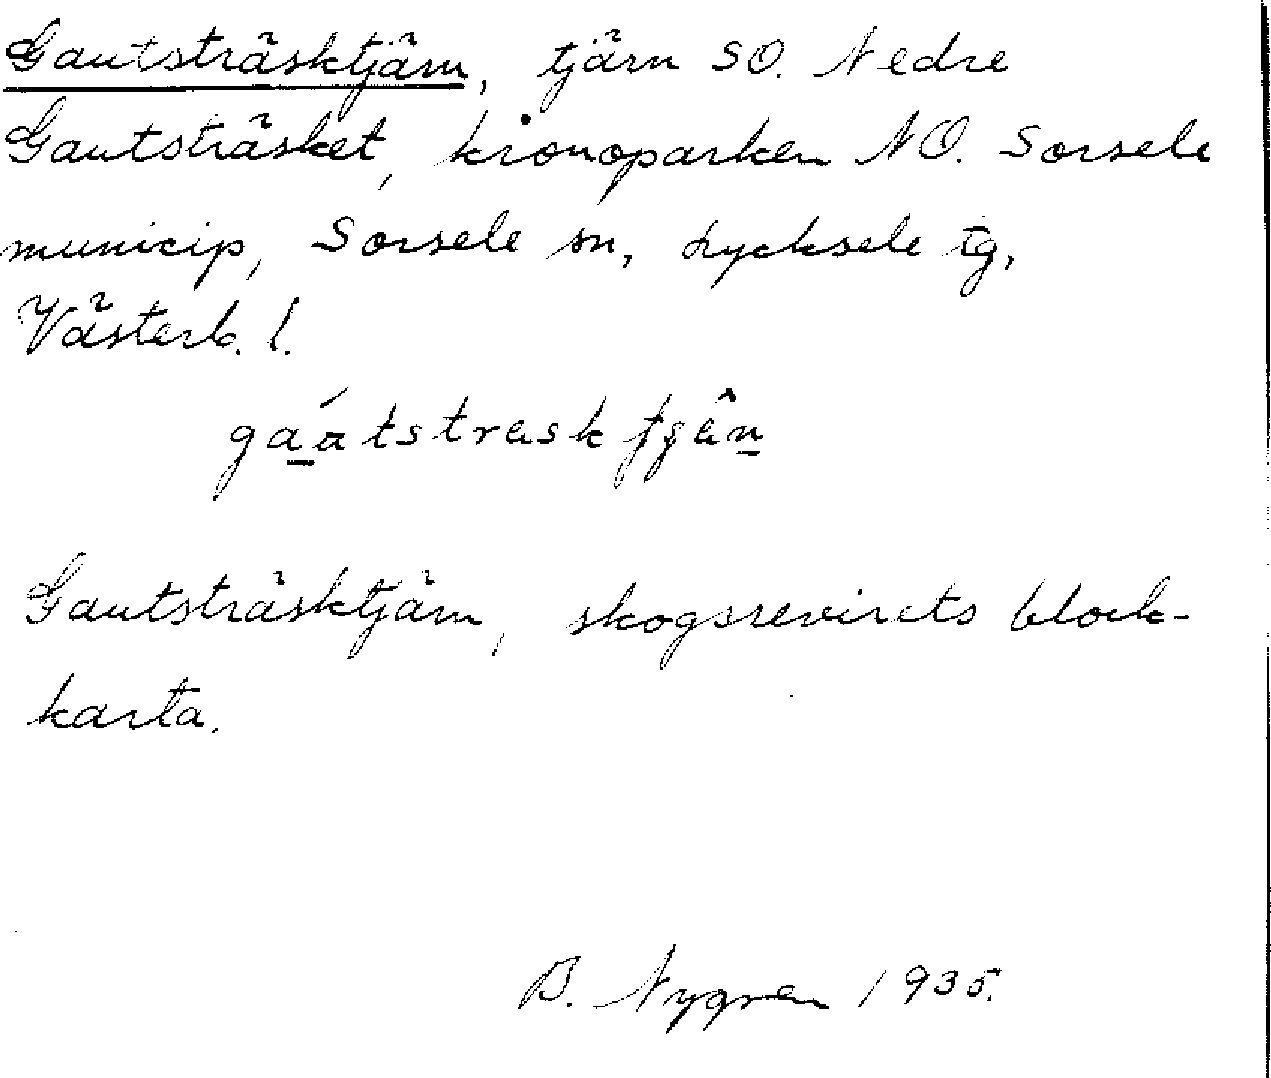 Gautsträsktjärn, tjärn SO. Nedre
Gautsträsket, kronoparken NO. Sorsele
municip, Sorsele sn, Lycksele tg,
Västerb. l.

Gautsträsktjärn, skogsrevirets block-
karta.
B. Nygren 1935.